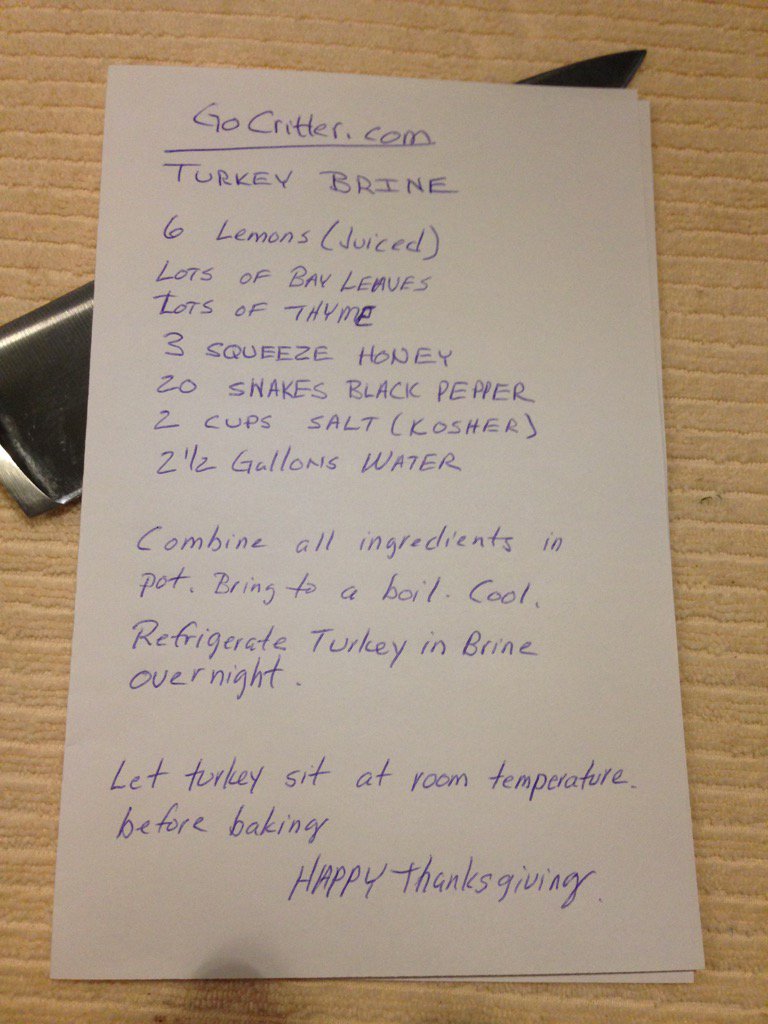 GoCritter.com
TURKEY BRINE
6 Lemons (Juiced)
LOTS OF BAY LEAVES
LOTS OF THYME
3 SQUEEZE HONEY
20 SHAKES BLACK PEPPER
2 CUPS SALT (KOSHER)
2 1/2 Gallons WATER
Combine all ingredients in
pot. Bring to a boil. Cool.
Refrigerate Turkey in Brine
overnight.
Let turkey sit at room temperature.
before baking
HAPPY thanksgiving.